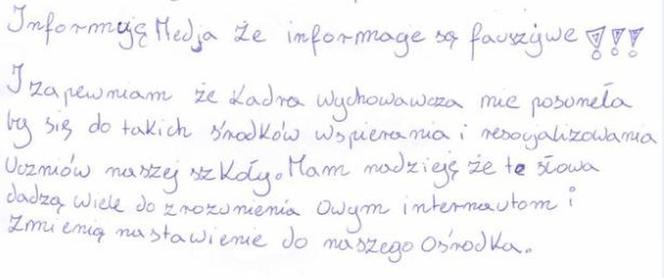 Informuję Medja że informage są fauszywe !!!
I zapewniam że Kadra wychowawcza nie posuneła
by się do takich środków wspierania i resocjalizowania
Uczniów naszej szkoły. Mam nadzieję że te słowa
dadzą wiele do zrozumienia owym internautom i
zmienią nastawienie do naszego Ośrodka.